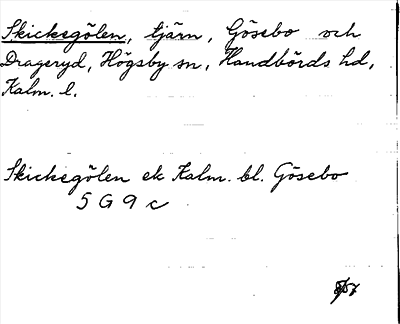 Skickegölen, tjärn, Gösebo och
Drageryd, Högsby sn, Handbörds hd,
Kalm. l.
Skickegölen ek Kalm. bl. Gösebo
5 G 9 c